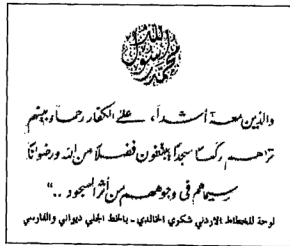 محمد رسول الله
والذين معه أشداء على الكفار رحماء بينهم
تراهم ركعا سجدا يبتغون فضلا من الله ورضوانا
سيماهم في وجوههم من أثر السجود .."
لوحة للخطاط الاردني شكري الخالدي - بالخط الجلي ديواني والفارسي